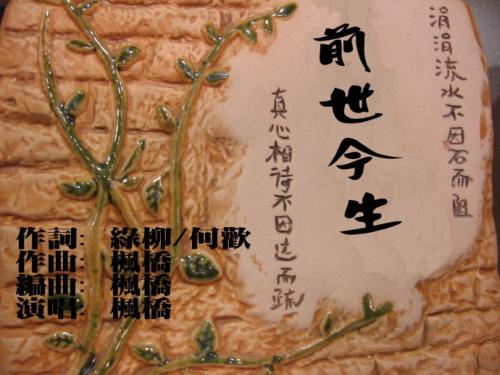 涓涓流水不因石而阻
前世今生
真心相待不因遠而疏
作詞: 綠柳/何歡
作曲: 楓橋
編曲: 楓橋
演唱: 楓橋